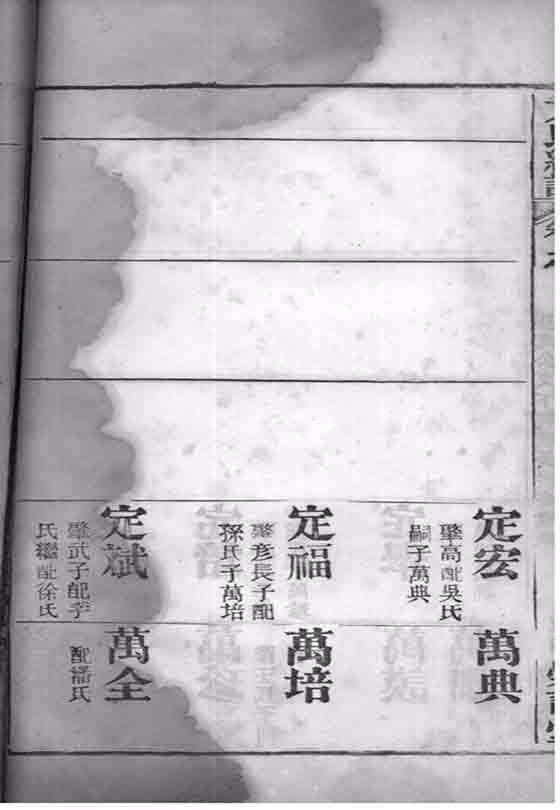 定宏
肇高配吳氏
嗣子萬典
定福
肇彥長子配
孫氏子萬培
定斌
肇武子配李
氏繼配徐氏
萬典
萬培
萬全
配潘氏